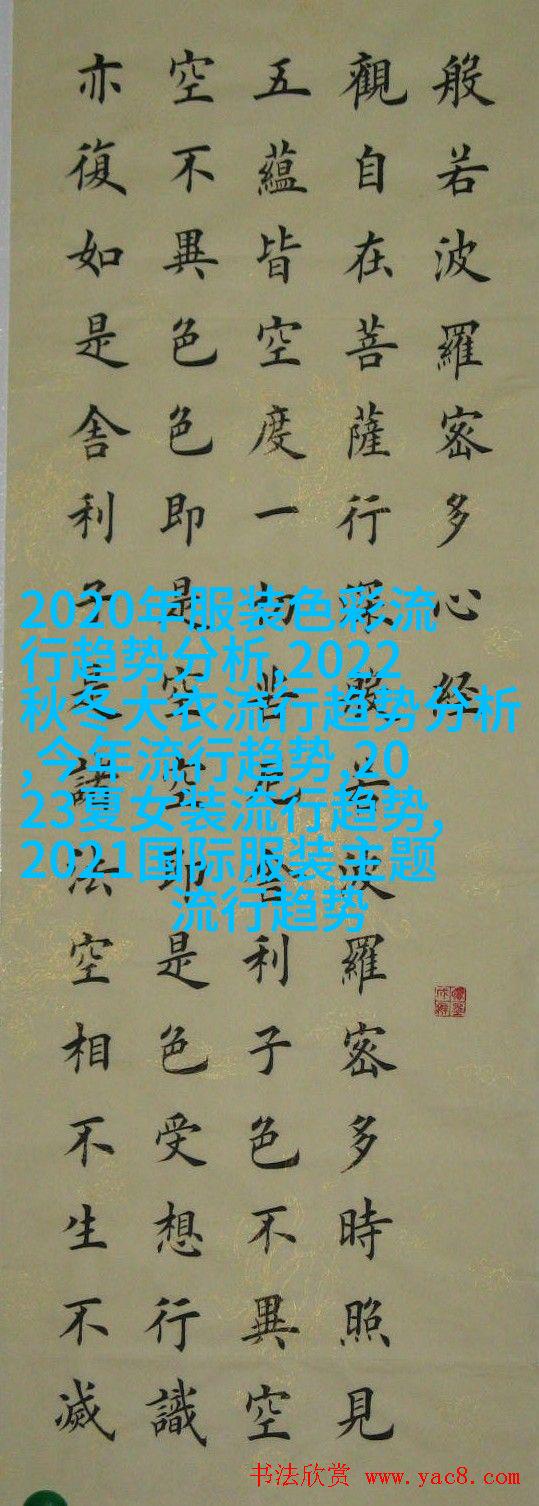 般若波羅密多心経
觀自在菩薩行深般若波羅密多時照見
五蘊皆空度一切苦厄舍利子色不異空
空不異色色即是空空即是色受想行識
亦復如是舍利子是諸法空相不生不滅
2020年服装色彩流
行趋势分析,2022
秋冬大衣流行趋势分析
,今年流行趋势,20
23夏女装流行趋势,
2021国际服装主题
流行趋势
书法欣赏 www.yac8.com